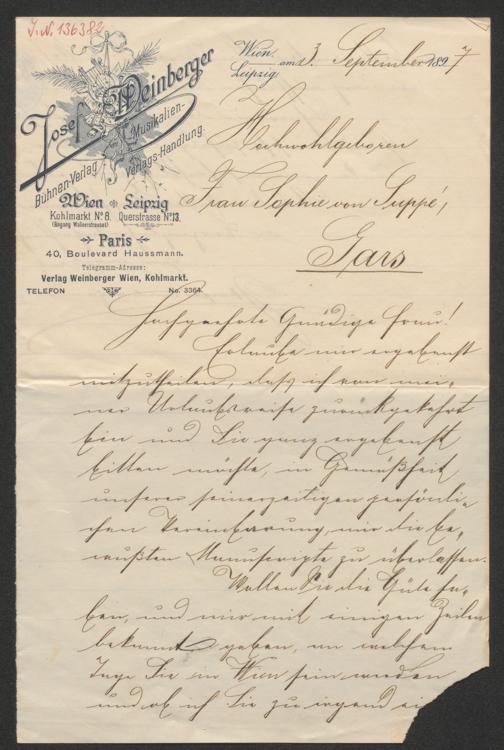 J.N. 136382
Josef Weinberger
Musikalien-
Bühnen-Verlag Verlags-Handlung.
Wien Leipzig
Kohlmarkt No 8. Querstrasse No 13.
(Eingang Wallnerstrasse)
Paris
40, Boulevard Haussmann.
Telegramm-Adresse:
Verlag Weinberger Wien, Kohlmarkt.
TELEFON No. 3364.
Wien,
Leipzig, am 3. September 1897
Hochwohlgeboren
Frau Sophie von Suppé,
Gars
Hochgeehrte Gnädige Frau!
Erlaube mir ergebenst
mitzutheilen, dass ich von mei-
ner Urlaubsreise zurückgekehrt
bin und Sie ganz ergebenst
bitten möchte, in Gemäßheit
unserer seinerzeitigen persönli-
chen Vereinbarung, mir die be-
wußten Manuscripte zu überlassen.
Wollen Sie die Güte ha-
ben, und mir mit einigen Zeilen
bekannt geben, an welchem
Tage Sie in Wien sein werden
und ob ich Sie zu irgend ei